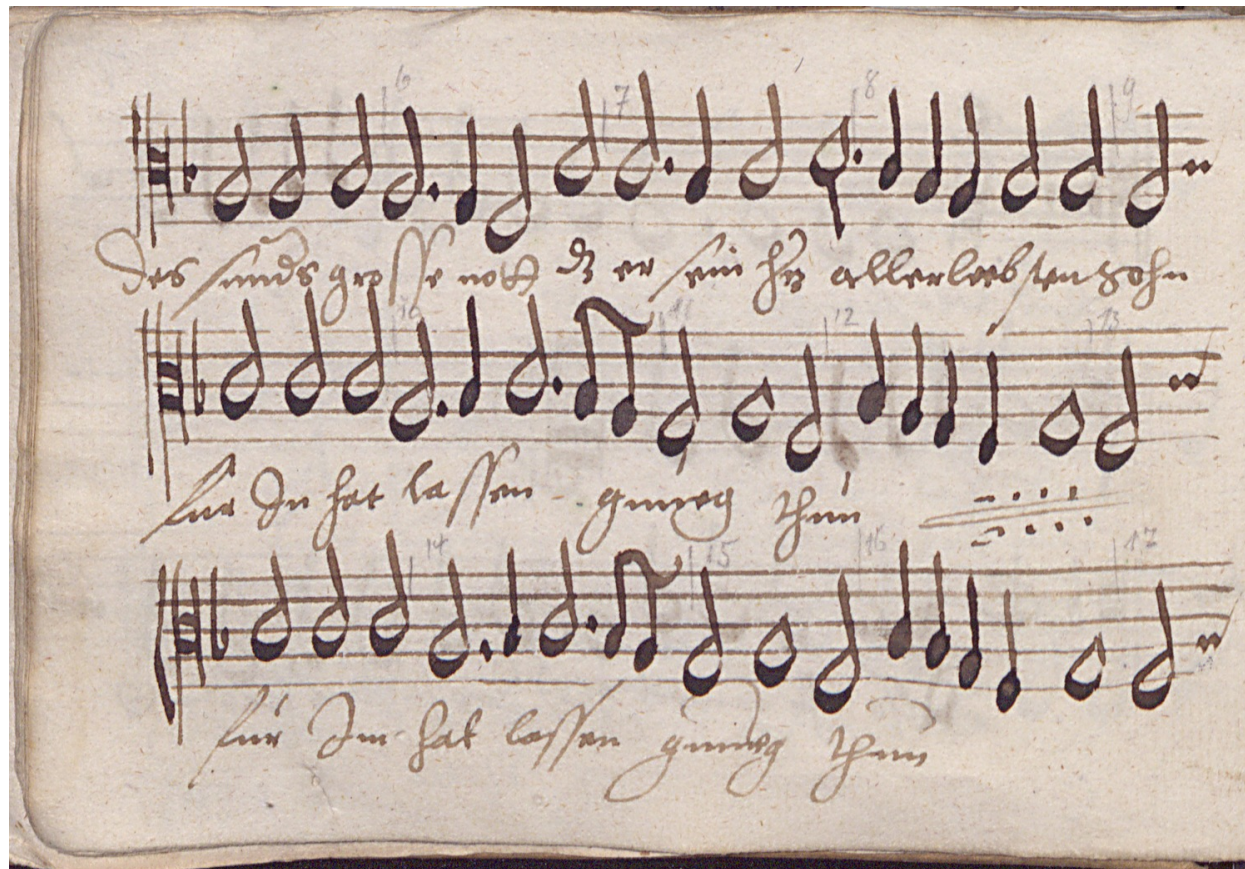 6 7 8 9
des sünds grosse nott dz er sein hrz allerliebsten Sohn
10 11 12 13
für In hat lassen gnueg thun
14 15 16 17
für Im hat lassen gnueg thun